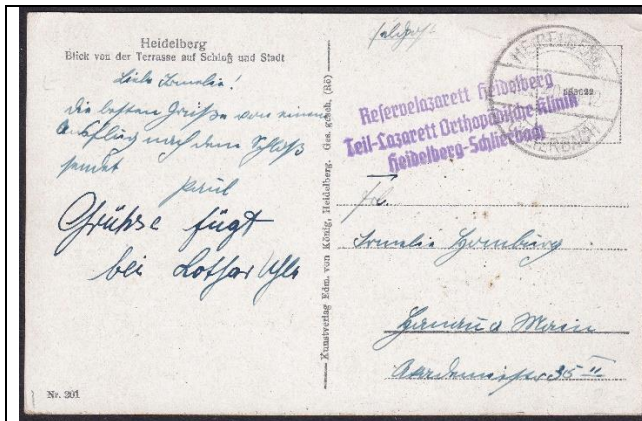 Heidelberg
Blick von der Terrasse auf Schloß und Stadt
die besten Grüße von einem
Ausflug nach dem Schloß
sendet
Paul
Grühse fügt
bei Lothar
Nr. 201
Kunstverlag Edm. von König, Heidelberg. Ges. gesch. (Rö)
Feldpost
HEIDELBERG
Reservelazarett Heidelberg
Teil-Lazarett Orthopädische Klinik
Heidelberg-Schlierbach
Homburg
Hanau a Main
35 II